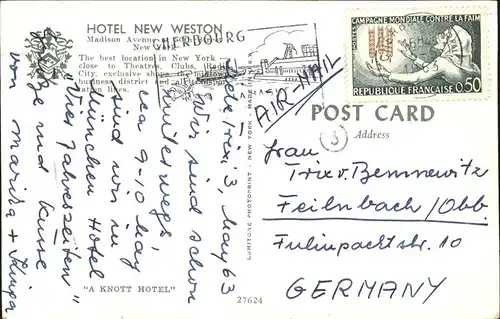 HOTEL NEW WESTON
Madison Avenue
New York
The best location in New York
close to Theatres, Clubs, Radio
City, exclusive shops, the midtown
business district and all
CHERBOURG
AIR-MAIL
POSTES CAMPAGNE MONDIALE CONTRE LA FAIM
REPUBLIQUE FRANÇAISE 0,50
POST CARD
Address
3, May 63
Wir sind schon
unterwegs,
ca 9-10 May
sind wir in
München Hotel
"Vier Jahreszeiten"
und Küsse
von Marika +
LUMITONE PHOTOPRINT - NEW YORK - MADE IN U.S.A.
Frau
Trix v. Bemnewitz
Feilnbach/Obb.
Fulinpachtstr. 10
GERMANY
"A KNOTT HOTEL"
27624